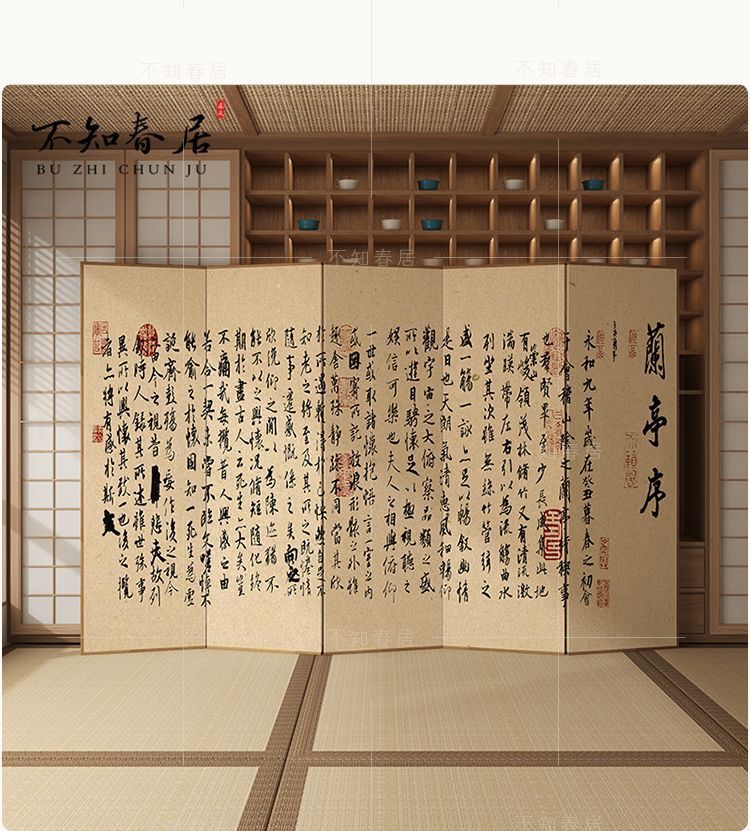 不知春居
不知春居
不知春居
BU ZHI CHUN JU
不知春居
蘭亭序
永和九年歲在癸丑暮春之初會
于會稽山陰之蘭亭脩稧事
也羣賢畢至少長咸集此地
有崇山峻領茂林脩竹又有清流激
湍暎帶左右引以為流觴曲水
列坐其次雖無絲竹管弦之
盛一觴一詠亦足以暢敘幽情
是日也天朗氣清惠風和暢仰
觀宇宙之大俯察品類之盛
所以遊目騁懷足以極視聽之
娛信可樂也夫人之相與俯仰
一世或取諸懷抱悟言一室之內
或因寄所託放浪形骸之外雖
趣舍萬殊靜躁不同當其欣
於所遇蹔得於己怏然自足不
知老之將至及其所之既惓情
隨事遷感慨係之矣向之所
欣俛仰之閒以為陳迹猶不
能不以之興懷況脩短隨化終
期於盡古人云死生亦大矣豈
不痛哉每攬昔人興感之由
若合一契未嘗不臨文嗟悼不
能喻之於懷固知一死生為虛
誕齊彭殤為妄作後之視今
亦由今之視昔悲夫故列
敘時人錄其所述雖世殊事
異所以興懷其致一也後之攬
者亦將有感於斯文
不知春居
不知春居
不知春居
不知春居